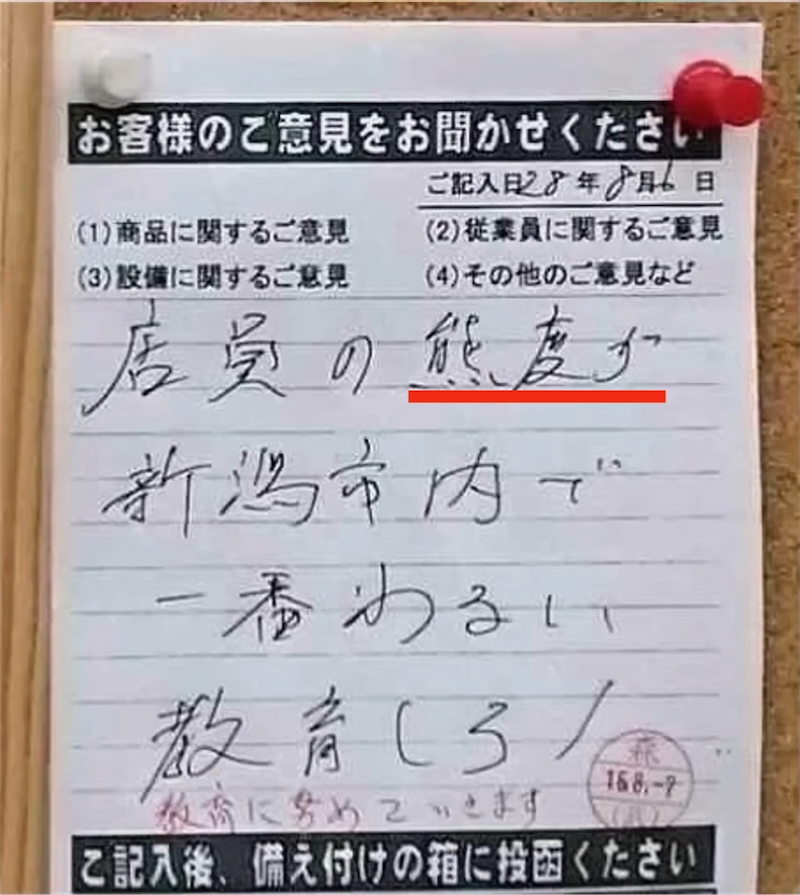 お客様のご意見をお聞かせください
ご記入日28年8月6日
(1)商品に関するご意見 (2)従業員に関するご意見
(3)設備に関するご意見 (4)その他のご意見など
店員の熊度が
新潟市内で
一番わるい
教育しろ!
教育に努めていきます
16.8.-7
ご記入後、備え付けの箱に投函ください